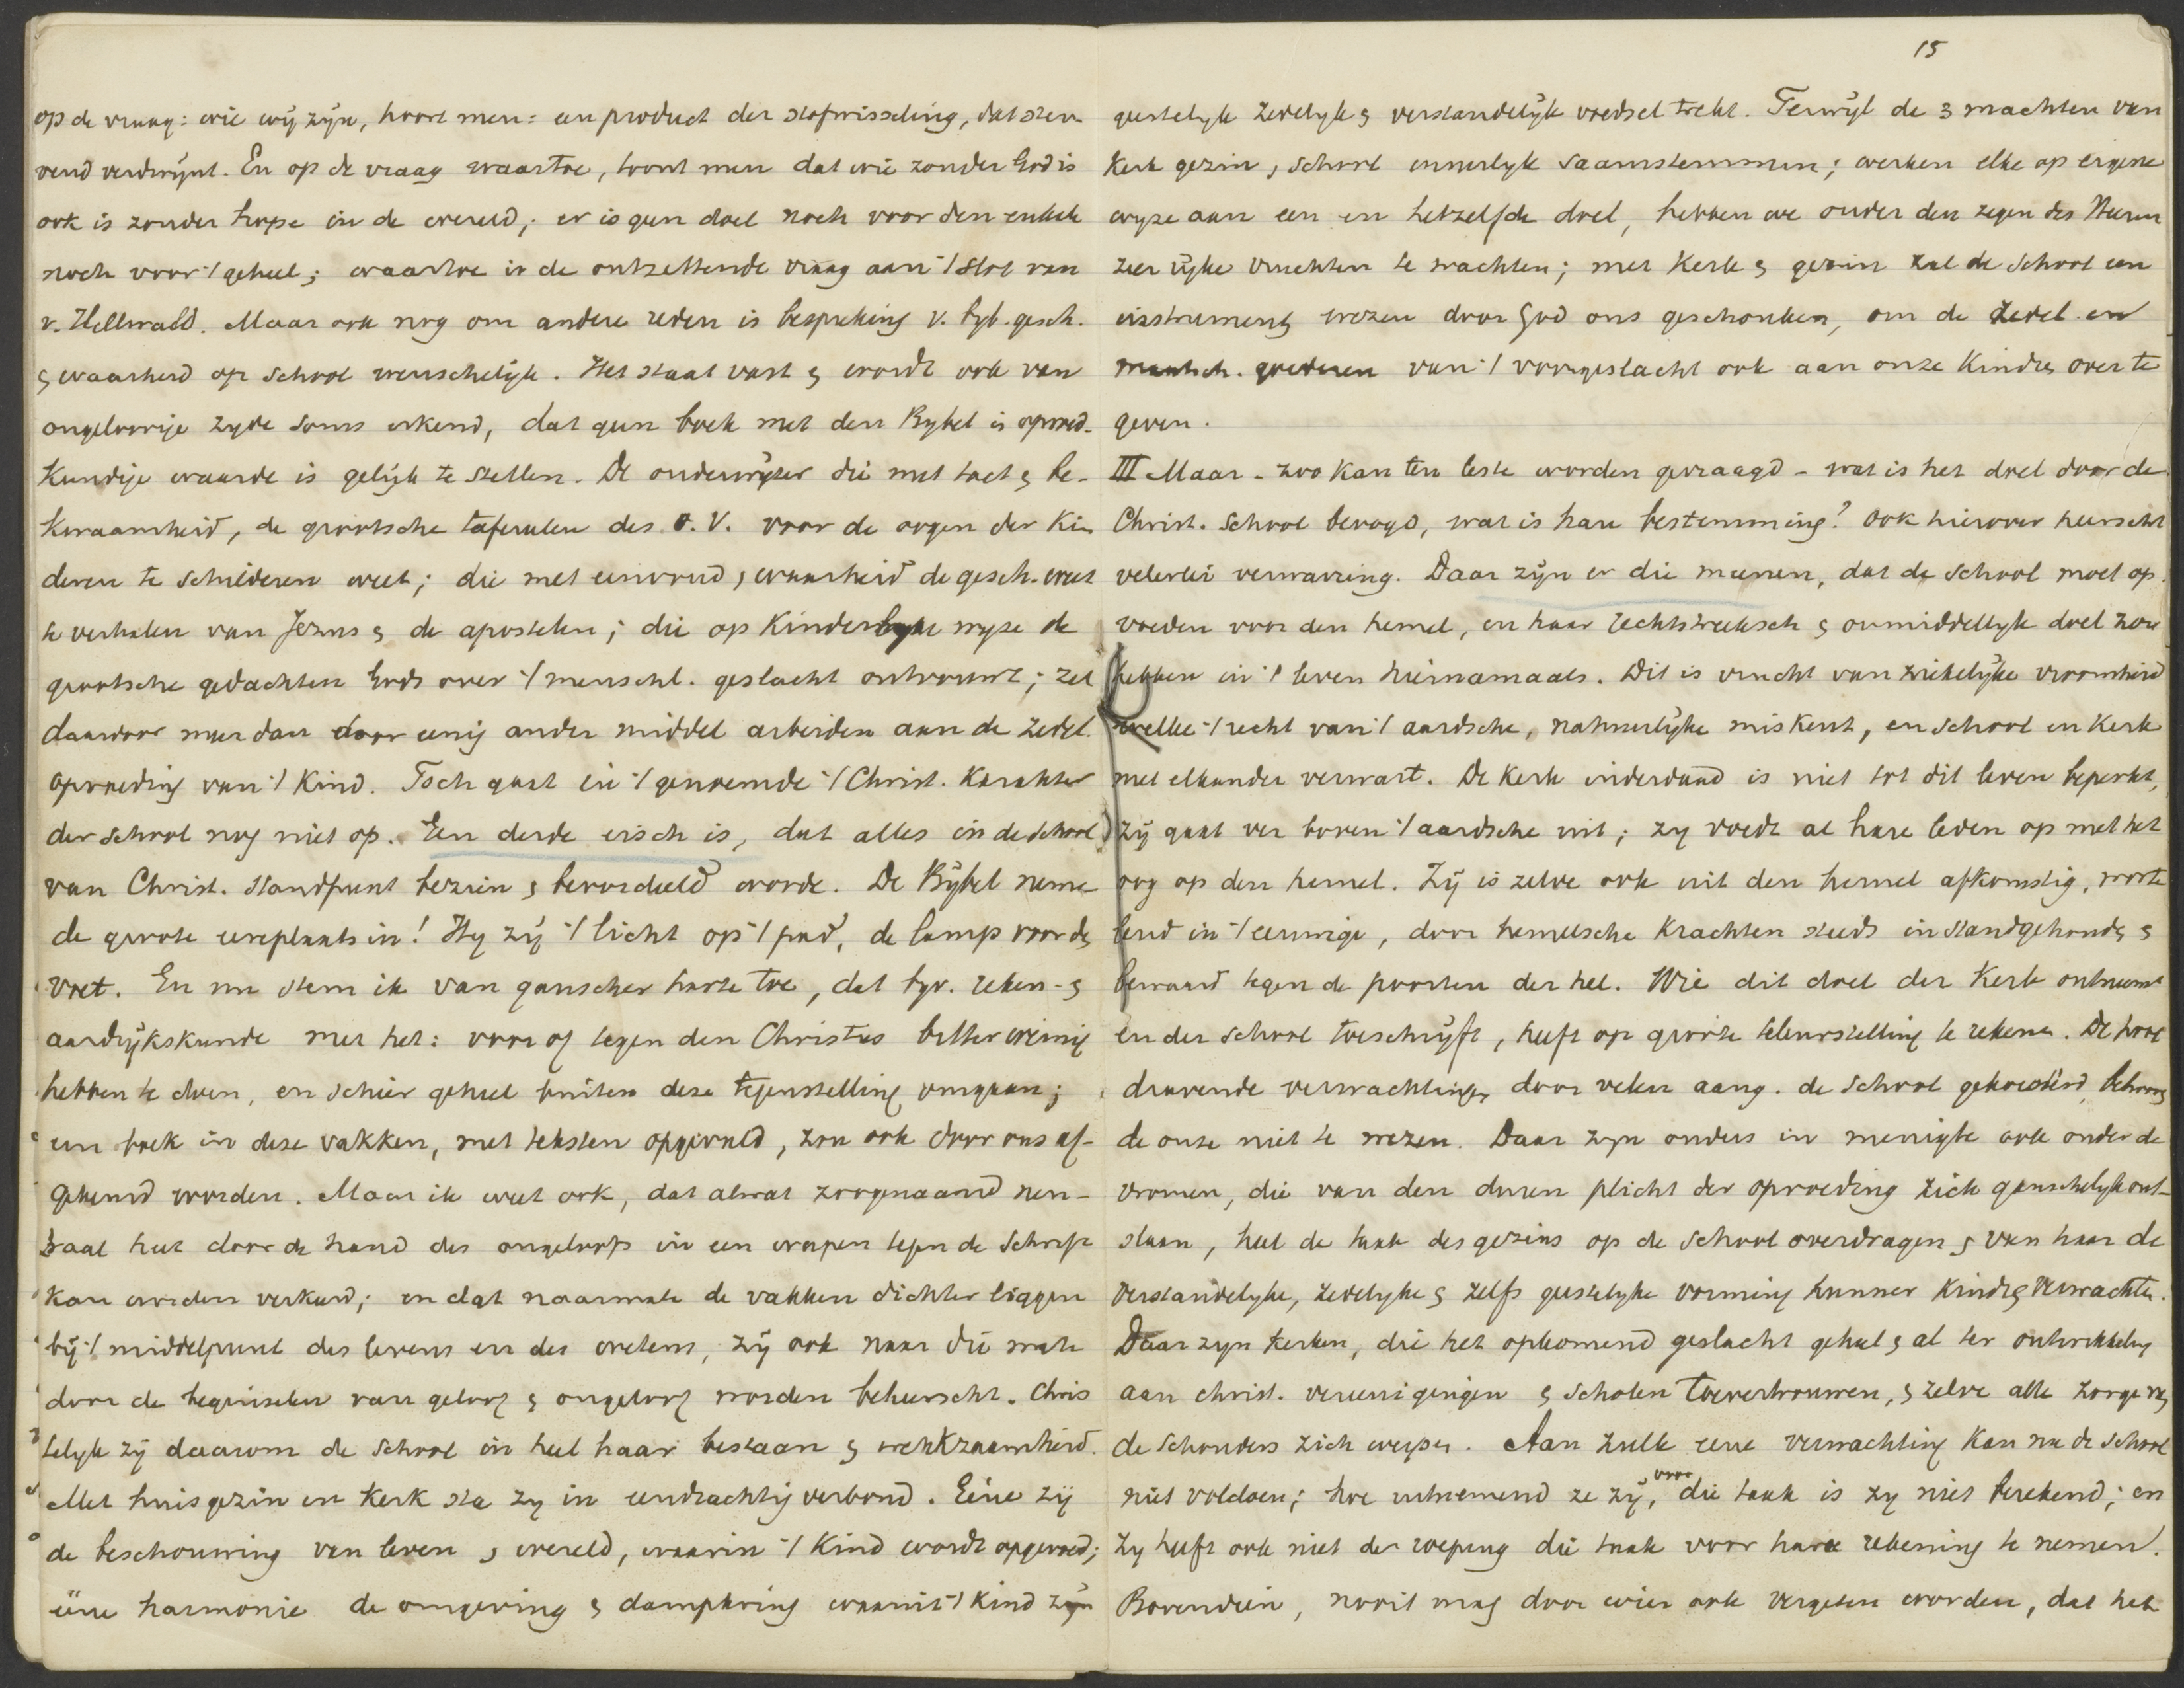 op de vraag: wie wij zijn, hoort men: een product der stofwisseling, dat ster-
vend verdwijnt. En op de vraag waartoe, toont men dat wie zonder God is
ook is zonder hope in de wereld; er is geen doel noch voor den enkele
noch voor 't geheel; waartoe is de ontzettende vraag aan 't slot van
v. Hellwald. Maar ook nog om andere reden is bespreking v. byb. gesch.
& waarheid op school wenschelijk. Het staat vast & wordt ook van
ongeloovige zyde soms erkend, dat geen boek met den Bybel in opvoed-
kundige waarde is gelijk te stellen. De onderwijzer die met tact & be-
kwaamheid, de grootsche tafereelen des O.V. voor de oogen der kin
deren te schilderen weet; die met eenvoud & waarheid de gesch. weet
te verhalen van Jezus & de apostelen; die op kinderlyke wyze de
grootsche gedachten Gods over 't menschl. geslacht ontvouwt; zal
daardoor meer dan door eenig ander middel arbeiden aan de zedel.
opvoeding van 't kind. Toch gaat in 't genoemde 't Christ. karakter
der school nog niet op. Een derde eisch is, dat alles in de school
van Christ. standpunt bezien & beoordeeld worde. De Bijbel neme
de groote eereplaats in! Hy zij 't licht op 't pad, de lamp voor den
voet. En nu stem ik van ganscher harte toe, dat byv. reken- &
aardrijkskunde met het: voor of tegen den Christus bitter weinig
hebben te doen, en schier geheel buiten deze tegenstelling omgaan;
een boek in deze vakken, met teksten opgevuld, zou ook door ons af-
gekeurd worden. Maar ik weet ook, dat alwat zoogenaamd neu-
traal heet door de hand des ongeloofs in een wapen tegen de Schrift
kan worden verkeerd; en dat naarmate de vakken dichter liggen
bij 't middelpunt des levens en des wetens, zij ook naar die mate
door de beginselen van geloof & ongeloof worden beheerscht. Chris
telyk zij daarom de school in heel haar bestaan & werkzaamheid.
Met huisgezin en kerk sta zy in eendrachtig verbond. Eéne zij
de beschouwing van leven & wereld, waarin 't kind wordt opgevoed;
ééne harmonie de omgeving & dampkring waaruit 't kind zijn
15
geestelyk zedelyk & verstandelijk voedsel trekt. Terwijl de 3 machten van
Kerk gezin & school innerlyk saamstemmen; werken elke op eigene
wyze aan een en hetzelfde doel, hebben we onder den zegen des Heeren
zeer rijke vruchten te wachten; met Kerk & gezin zal de School een
instrument wezen door God ons geschonken, om de zedel. en
maatsch. goederen van 't voorgeslacht ook aan onze kindren over te
geven.
III Maar - zoo kan ten leste worden gevraagd - wat is het doel door de
Christ. School beoogd, wat is hare bestemming? Ook hierover heerscht
velerlei verwarring. Daar zijn er die meenen, dat de school moet op-
voeden voor den hemel, en haar rechtstreeksch & onmiddellyk doel zou
hebben in 't leven hiernamaals. Dit is vrucht van ziekelijke vroomheid
welke 't recht van 't aardsche, natuurlijke miskent, en school en kerk
met elkander verwart. De kerk inderdaad is niet tot dit leven beperkt,
zij gaat ver boven 't aardsche uit; zy voedt al hare leden op met het
oog op den hemel. Zij is zelve ook uit den hemel afkomstig, worte
lend in 't eeuwige, door hemelsche krachten steeds in stand gehouden &
bewaard tegen de poorten der hel. Wie dit doel der Kerk ontneemt
en der school toeschrijft, heeft op groote teleurstelling te rekenen. De hoog
dravende verwachtingen door velen aang. de School gekoesterd, behooren
de onze niet te wezen. Daar zyn ouders in menigte ook onder de
vromen, die van den duren plicht der opvoeding zich ganschelyk ont-
slaan, heel de taak des gezins op de school overdragen & van haar de
verstandelyke, zedelyke & zelfs geestelyke vorming hunner kindren verwachten.
Daar zyn kerken, die het opkomend geslacht geheel & al ter ontwikkeling
aan christ. vereenigingen & scholen toevertrouwen, & zelve alle zorge van
de schouders zich werpen. Aan zulk eene verwachting kan nu de school
niet voldoen; hoe uitnemend ze zij, voor die taak is zy niet berekend; en
zy heeft ook niet de roeping die taak voor hare rekening te nemen.
Bovendien, nooit mag door wien ook vergeten worden, dat het